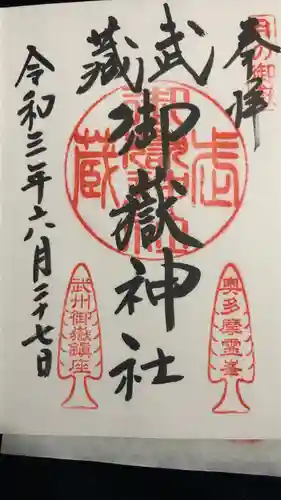 奉拝
武蔵
御嶽神社
令和三年六月二十七日
武蔵
奥多摩霊峯
武州御嶽鎮座